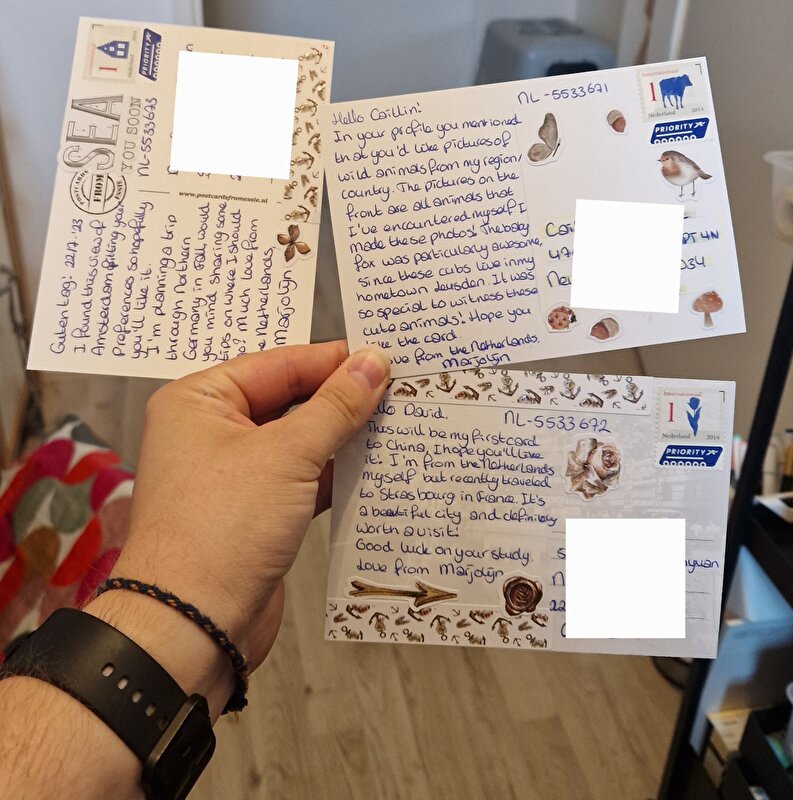 1
Nederland 2014
PRIORITY
POSTCARDS
FROM
ESSIE
SEA
YOU SOON
NL-5533673
www.postcardsfromessie.nl
Guten tag! 22/7-'23
I found this view of
Amsterdam fitting your
preferences so hopefully
you'll like it.
I'm planning a trip
through northern
Germany in Fall, would
you mind sharing some
tips on where I should
go? Much love from
the Netherlands
Marjolijn
Hello Caitlin!
In your profile you mentioned
that you'd like pictures of
wild animals from my region/
country. The pictures on the
front are all animals that
I've encountered myself I
made these photos! The baby
fox was particularly awesome,
since these cubs live in my
hometown Heusden. It was
so special to witness these
cute animals! Hope you
like the card.
Love from the Netherlands.
Marjolijn
NL-5533671
Internationaal
1
Nederland 2014
PRIORITY
Cai
47
PT 4N
034
Ne
Hello David,
This will be my first card
to China, I hope you'll like
it! I'm from the Netherlands
myself but recently traveled
to Strasbourg in France. It's
a beautiful city and definitely
worth a visit!
Good luck on your study.
Love from Marjolijn
NL-5533672
Internationaal
1
Nederland 2014
PRIORITY
S
N
22